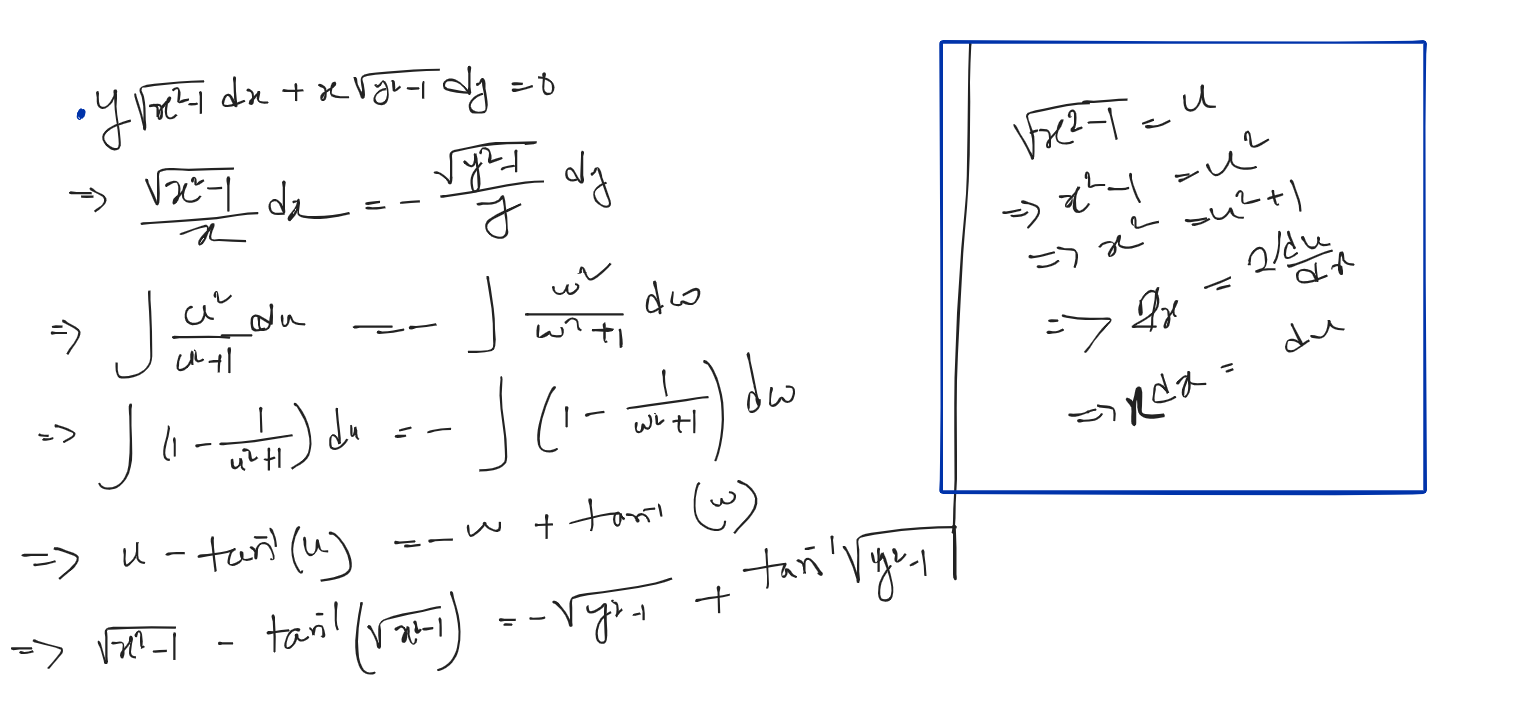 y√(x²-1) dx + x√(y²-1) dy = 0
=> √(x²-1)/x dx = - √(y²-1)/y dy
=> ∫ u²/(u²+1) du = - ∫ w²/(w²+1) dw
=> ∫ (1 - 1/(u²+1)) du = - ∫ (1 - 1/(w²+1)) dw
=> u - tan⁻¹(u) = - w + tan⁻¹(w)
=> √(x²-1) - tan⁻¹(√(x²-1)) = - √(y²-1) + tan⁻¹√(y²-1)
√(x²-1) = u
=> x²-1 = u²
=> x² = u²+1
=> 2x = 2 du/dx
=> x dx = du